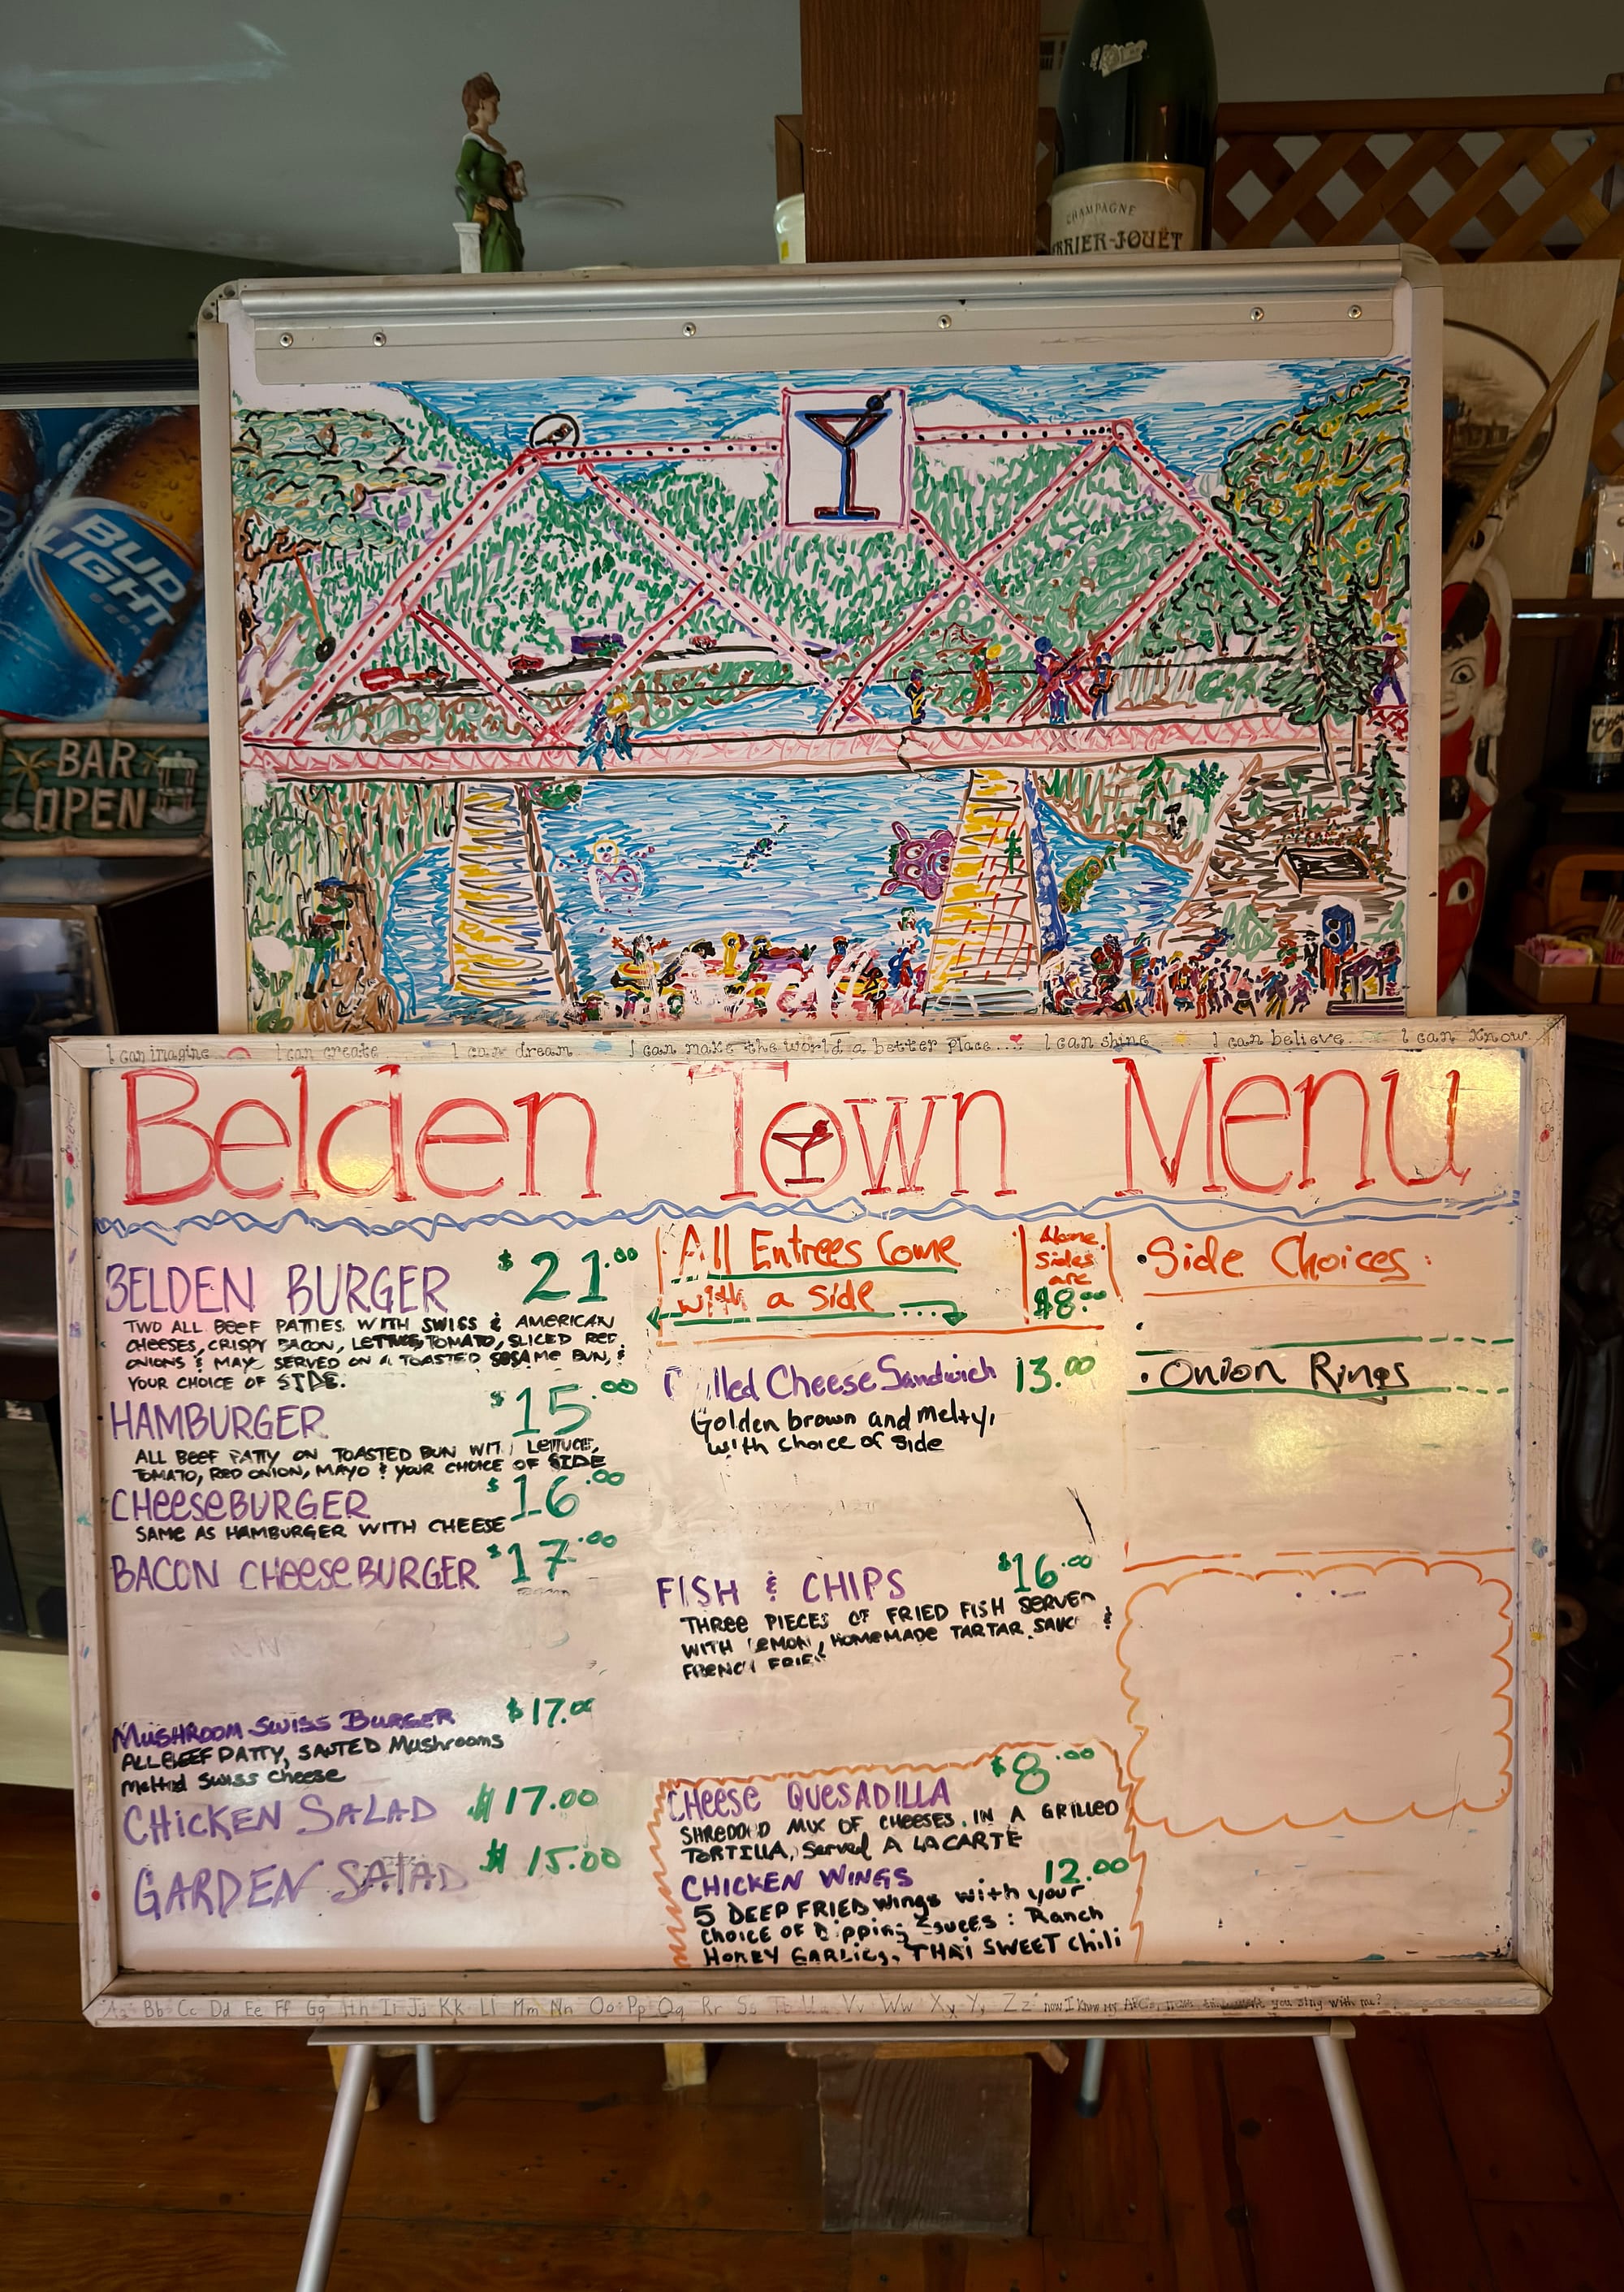 CHAMPAGNE
RRIER-JOUËT
BUD
LIGHT
BEER
BAR
OPEN
I can imagine
I can create
I can dream
I can make the world a better place...
I can shine
I can believe
I can know
Belden Town Menu
BELDEN BURGER $21.00
TWO ALL BEEF PATTIES WITH SWISS & AMERICAN
CHEESES, CRISPY BACON, LETTUCE, TOMATO, SLICED RED
ONIONS & MAYO SERVED ON A TOASTED SESAME BUN, &
YOUR CHOICE OF SIDE.
HAMBURGER $15.00
ALL BEEF PATTY ON TOASTED BUN WITH LETTUCE,
TOMATO, RED ONION, MAYO & YOUR CHOICE OF SIDE
CHEESEBURGER $16.00
SAME AS HAMBURGER WITH CHEESE
BACON CHEESEBURGER $17.00
MUSHROOM SWISS BURGER $17.00
ALL BEEF PATTY, SAUTED Mushrooms
Melted Swiss Cheese
CHICKEN SALAD $17.00
GARDEN SALAD $15.00
All Entrees Come
with a side
Alone
Sides
are
$8.00
Grilled Cheese Sandwich 13.00
Golden brown and melty,
with choice of side
FISH & CHIPS $16.00
THREE PIECES OF FRIED FISH SERVED
WITH LEMON, HOMEMADE TARTAR SAUCE &
FRENCH FRIES
CHEESE QUESADILLA $8.00
SHREDDED MIX OF CHEESES, IN A GRILLED
TORTILLA, Served A LA CARTE
CHICKEN WINGS 12.00
5 DEEP FRIED wings with your
choice of Dipping Sauces: Ranch
HONEY GARLIC, THAI SWEET Chili
• Side Choices:
• Onion Rings
Aa Bb Cc Dd Ee Ff Gg Hh Ii Jj Kk Ll Mm Nn Oo Pp Qq Rr Ss Tt Uu Vv Ww Xx Yy Zz now I know my ABC's, you sing with me?